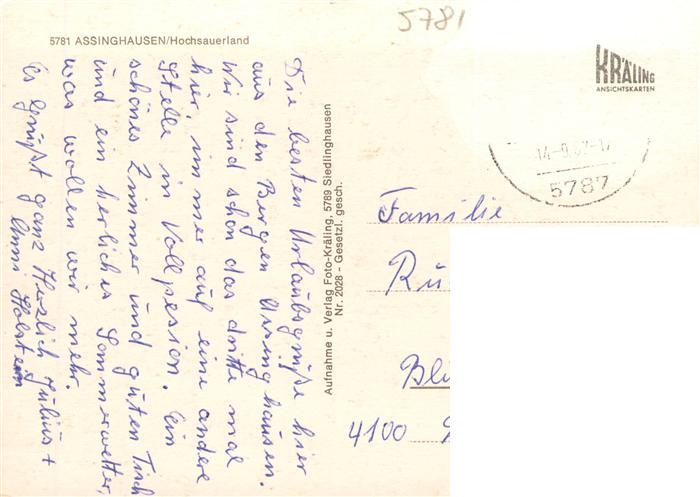 5781
5781 ASSINGHAUSEN/Hochsauerland
KRÄLING
ANSICHTSKARTEN
5787
Die besten Urlaubsgrüße hier
aus den Bergen Assinghausen.
Wir sind schon das dritte mal
hier, immer auf eine andere
Stelle in Vollpession. Ein
schönes Zimmer und guten Tisch
und ein herliches Sommerwetter,
was wollen wir mehr.
Es grüßt ganz Herzlich Julius +
Anni Holstein
Aufnahme u. Verlag Foto-Kräling, 5789 Siedlinghausen
Nr. 2028 - Gesetzl. gesch.
Familie
4100